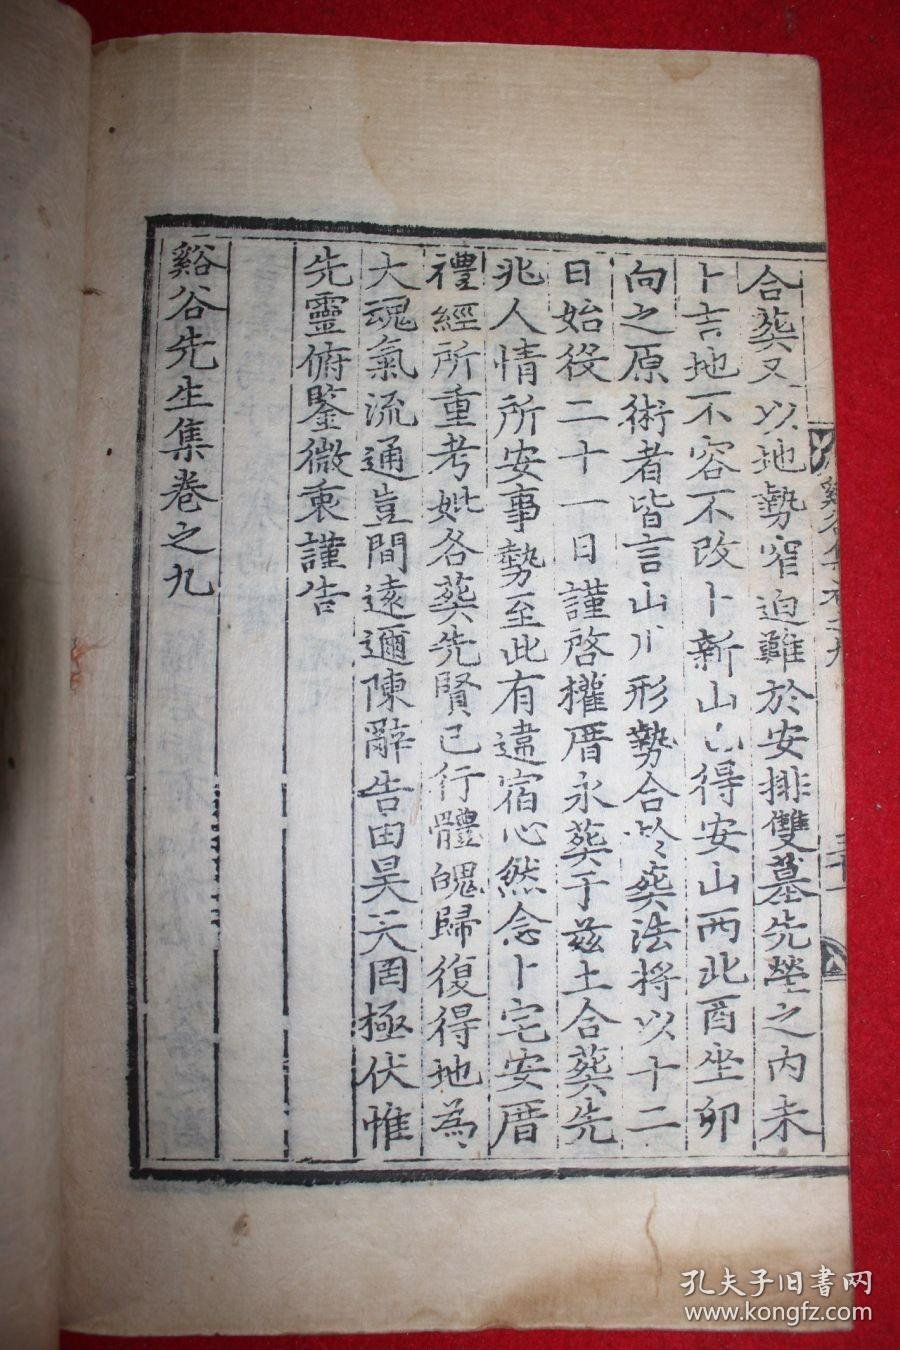 合葬又以地勢窄迫難於安排雙墓先塋之內未
卜吉地不容不改卜新山已得安山西北酉坐卯
向之原術者皆言山川形勢合於葬法將以十二
日始役二十一日謹啓欑厝永葬于玆土合葬先
兆人情所安事勢至此有違宿心然念卜宅安厝
禮經所重考妣各葬先賢已行體魄歸復得地為
大魂氣流通豈間遠邇陳辭告由昊天罔極伏惟
先靈俯鑒微衷謹告
谿谷先生集卷之九
孔夫子旧书网
www.kongfz.com